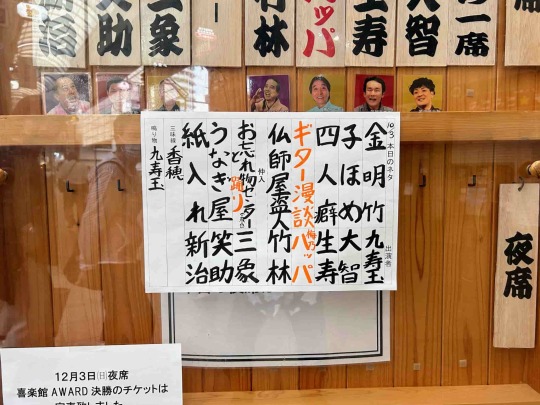 の一席
大智
生寿
ッパ
竹林
三象
助
治
本日のネタ 出演者
金明竹 九寿玉
子ほめ 大智
四人癖 生寿
ギター漫談 ハッパ
仏師屋盗人 竹林
仲入
お忘れ物センター 三象
と踊り
うなぎ屋 笑助
紙入れ 新治
三味線 香穂
鳴り物 九寿玉
夜席
12月3日㊐夜席
喜楽館AWARD決勝のチケットは